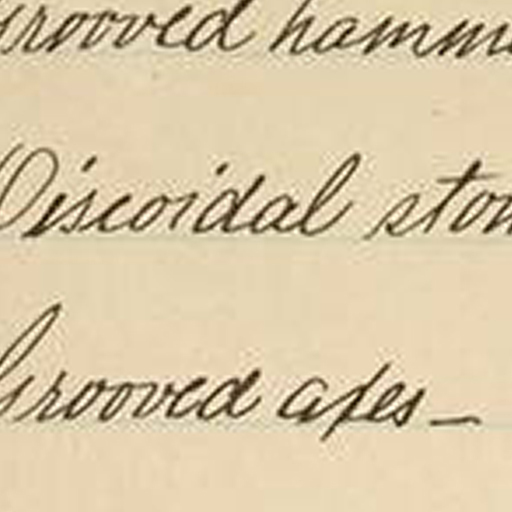 Grooved hamm
Discoidal ston
Grooved axes —